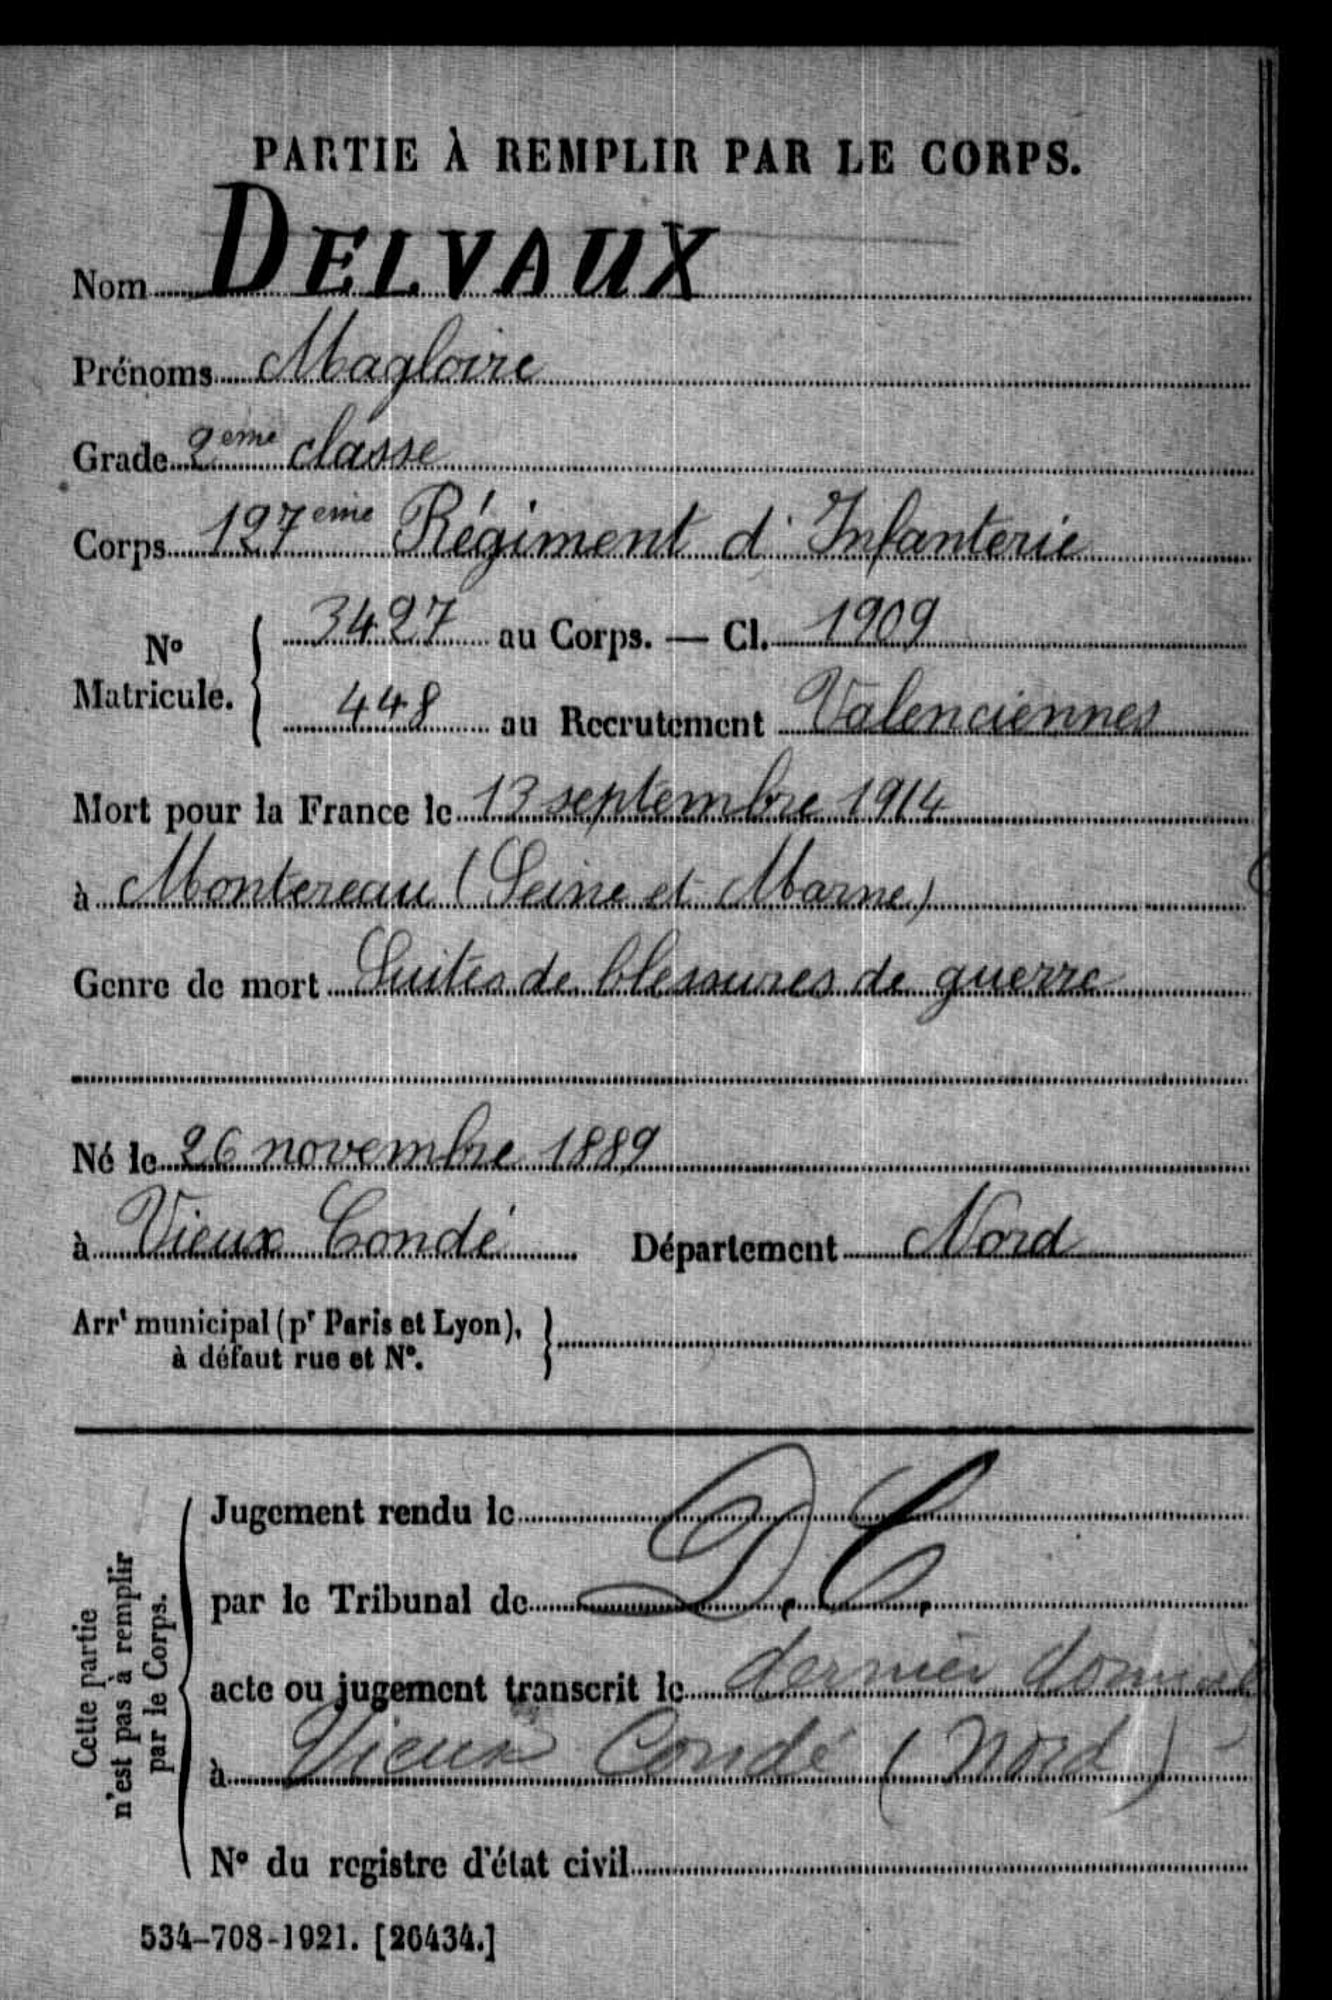 PARTIE À REMPLIR PAR LE CORPS.
Nom DELVAUX
Prénoms Magloire
Grade 2ème classe
Corps 127ème Régiment d'Infanterie
No Matricule. { 3427 au Corps. — Cl. 1909
448 au Recrutement Valenciennes
Mort pour la France le 13 septembre 1914
à Montereau (Seine et Marne)
Genre de mort Suites de blessures de guerre
Né le 26 novembre 1889
à Vieux Condé Département Nord
Arrt municipal (pr Paris et Lyon),
à défaut rue et N°. }
Cette partie
n'est pas à remplir
par le Corps.
Jugement rendu le
par le Tribunal de D.C.
acte ou jugement transcrit le dernier domicile
à Vieux Condé (Nord)
N° du registre d'état civil
534-708-1921. [26434.]